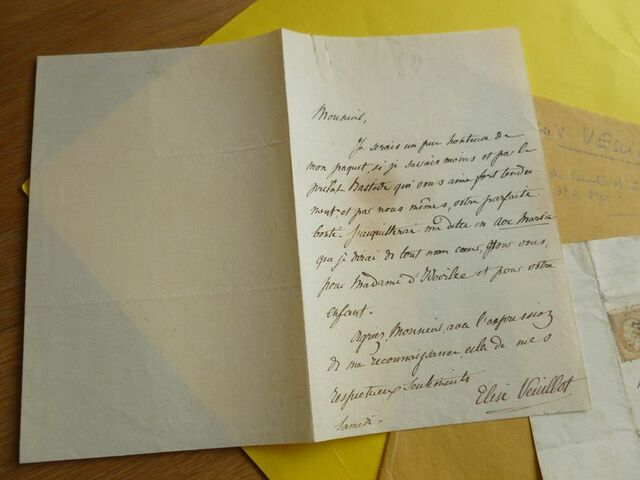 Monsieur,
Je serais un peu honteuse de
mon paquet, si je savais moins et par le
prélat Bastide qui vous aime fort tendre-
ment et par nous mêmes, votre parfaite
bonté. J'acquitterai ma dette en ave Maria
que je dirai de tout mon cœur, pour vous,
pour Madame d' et pour votre
enfant.
Agréez, Monsieur, avec l'expression
de ma reconnaissance celle de mes
respectueux sentiments
Elise Veuillot
Samedi.